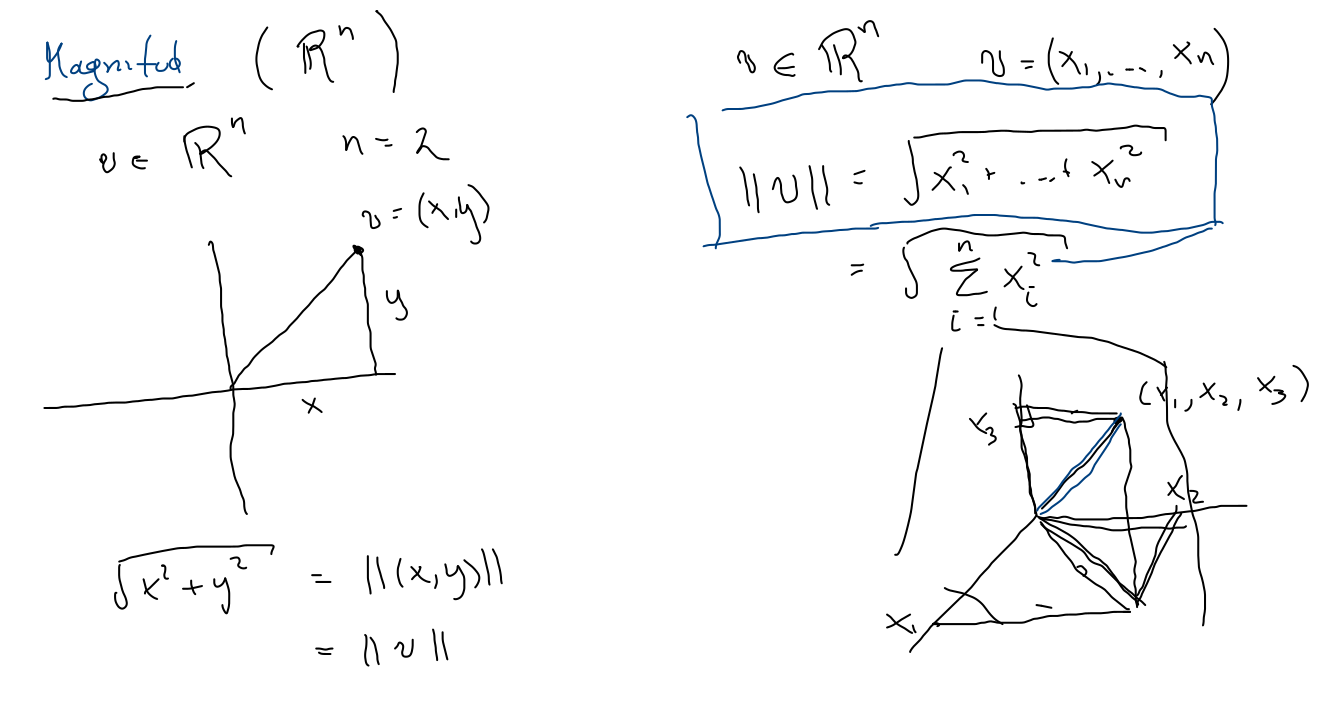 Magnitud (ℝⁿ)
v ∈ ℝⁿ n = 2
v = (x,y)
y
x
√(x² + y²) = ||(x,y)||
= ||v||
v ∈ ℝⁿ v = (x₁,...., xₙ)
||v|| = √(x₁² + ...+ xₙ²)
= √(∑ⁿᵢ₌₁ xᵢ²)
(x₁, x₂, x₃)
x₃
x₂
x₁